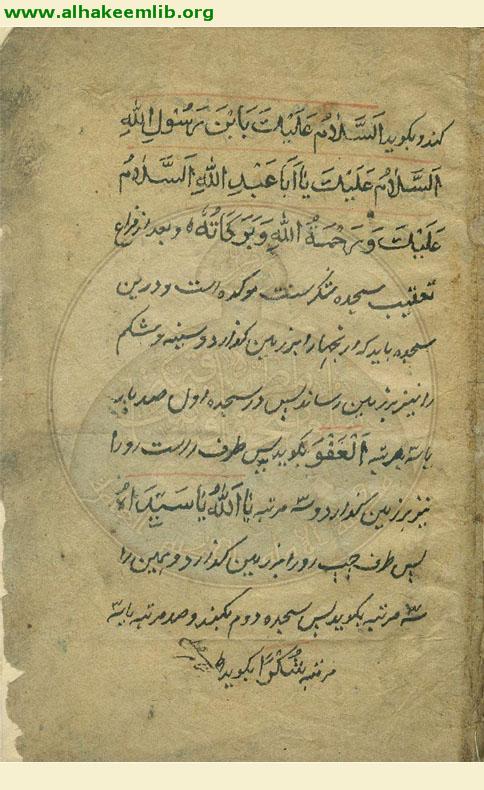 www.alhakeemlib.org
کند و بکوید اَلسَّلامُ عَلَیْكَ یَابْنَ رَسُولِ اللهِ
اَلسَّلامُ عَلَیْكَ یٰا اَبَا عَبْدِ اللهِ اَلسَّلامُ
عَلَیْكَ وَ رَحْمَةُ اللهِ وَ بَرَکاتُهُ و بعد از فراغ
تعقیب سجده شکر سنت موکده است و درین
سجده باید که ارنجها را بزمین کذارد و سینه و شکم
را نیز بزمین رساند پس در سجده اول صد بار
یا سه مرتبه اَلْعَفْوَ بکوید پس طرف راست رو را
نیز بزمین کذارد و سه مرتبه یٰا اَللهُ یٰا سَیِّدٰاهُ
پس طرف چپ رو را بزمین کذارد و همین را
سه مرتبه بکوید پس سجده دوم بکند و صد مرتبه یا سه
مرتبه شُکْرًا بکوید